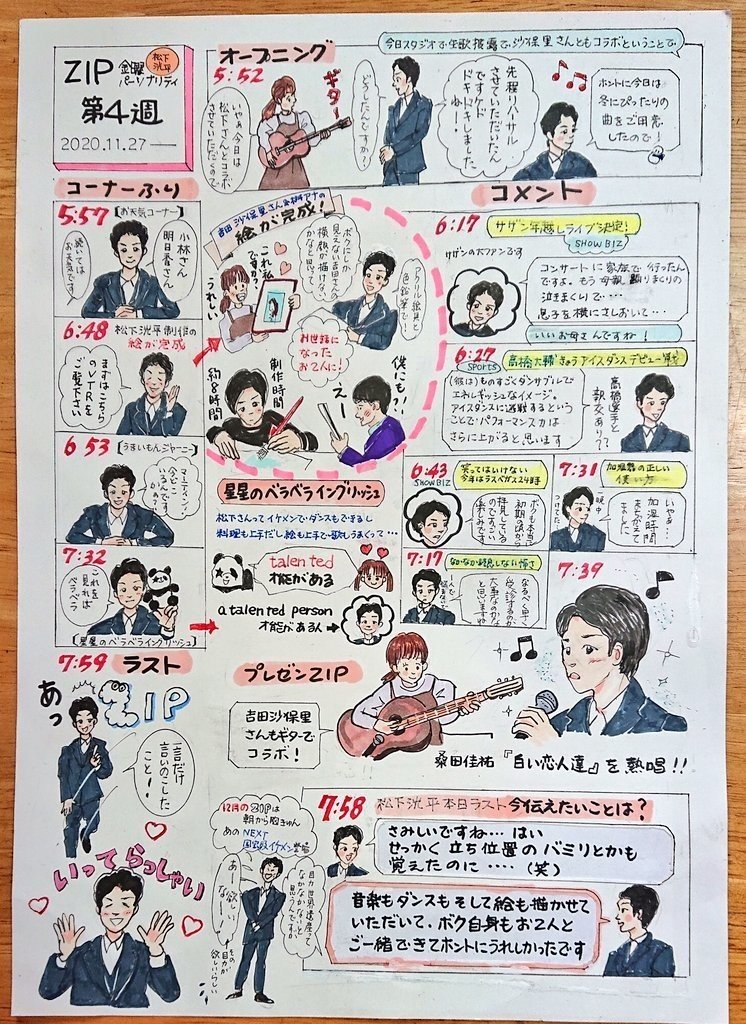 ZIP 金曜パーソナリティ
松下洸平
第4週
2020.11.27
オープニング
今日スタジオで生歌披露で、沙保里さんともコラボということで
5:52
いやぁ今日は
松下さんとコラボ
させていただくので
ギター
どうしたんですか?
先程リハーサル
させていただいたん
ですケド
ドキドキしました
ねー!
ホントに今日は
冬にぴったりの
曲をご用意
したので!
コーナーふり
5:57
【お天気コーナー】
小林さん
明日香さん
続いては
お天気です
6:48
松下洸平制作の
絵が完成
まずはこちら
のVTRを
ご覧下さい
6:53
マーティン!
今どこ
いるんです
かぁー?
7:32
これを
見れば
ベラベラ
【星星のベラベライングリッシュ】
吉田沙保里さん
絵が完成!
これ私
ですかっ
うれしい
ボクにしか
見えない吉田さんの
横顔が描けない
かなと思って
アクリル絵具と
色鉛筆で!
お世話に
なった
お2人に!
制作時間
約8時間
僕にも!!
えー
星星のベラベライングリッシュ
松下さんってイケメンで・ダンスもできるし
料理も上手だし絵も上手で歌もうまくって…
talented
才能がある
a talented person
才能がある人
コメント
6:17
サザン年越しライブ決定!
SHOWBIZ
サザンの大ファンです
コンサートに家族で行ったん
ですよ。もう母親
泣きまくりで…
息子を横にさしおいて…
いいお母さんですね!
6:27
SPORTS
高橋大輔きょうアイスダンスデビュー戦
(彼は)ものすごくダンサブルで
エネルギッシュなイメージ。
アイスダンスに挑戦するという
ことで・パフォーマンスは
さらに上がると思います
高橋選手と
親交あり?
6:43
SHOWBIZ
笑ってはいけない
今年はラスベガス24時
ボクも本当に
初期の頃から
拝見している
のですごい
楽しみです
7:31
加湿器の正しい
使い方
いやぁ…
加湿時間
まちがえて
ました
7:17
なるべく早く
受診するのが
大事なのかな
と思いますね
7:39
プレゼンZIP
吉田沙保里
さんもギターで
コラボ!
桑田佳祐『白い恋人達』を熱唱!!
7:59 ラスト
あっ
ZIP
一言だけ
言いのこした
こと!
いってらっしゃい
12月のZIPは
朝から胸きゅん
あの NEXT
国宝級イケメン登場
目力世界遺産って
なかなかないと
思うんですが
あー欲しい
なー!
その
目力が
欲しいらしい
7:58
松下洸平本日ラスト今伝えたいことは?
さみしいですね… はい
せっかく立ち位置のバミリとかも
覚えたのに…. (笑)
音楽もダンスもそして絵も描かせて
いただいて、ボク自身もお2人と
ご一緒できてホントにうれしかったです